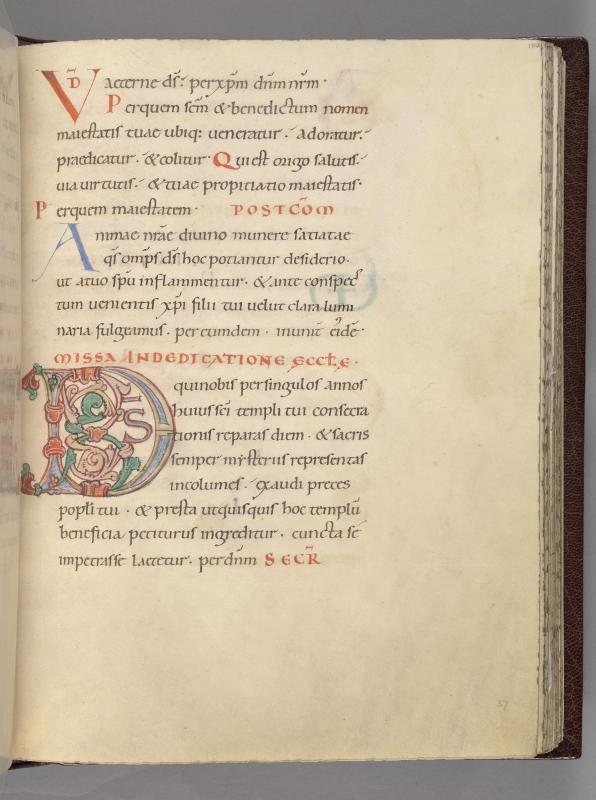 VD̄ aeterne ds̄: per xp̄m dn̄m nr̄m·
Per quem sc̄m & benedictum nomen
maiestatis tuae ubiq: ueneratur. adoratur.
praedicatur. & colitur· Qui est origo salutis.
uia uirtutis. & tuae propitiatio maiestatis·
Per quem maiestatem· POSTCŌM
Animae nr̄ae diuino munere satiatae
qs̄ omp̄s ds̄ hoc potiantur desiderio.
ut a tuo sp̄u inflammentur. & ante conspec
tum uenientis xp̄i filii tui uelut clara lumi
naria fulgeamus. per eumdem.
MISSA IN DEDICATIONE ECCLE·
DS qui nobis per singulos annos
huius sc̄i templi tui consecra
tionis reparas diem. & sacris
semper mysteriis representas
incolumes. exaudi preces
popl̄i tui. & presta ut quisquis hoc templū
beneficia petiturus ingreditur. cuncta se
impetrasse laetetur. per dn̄m SECR̄
37